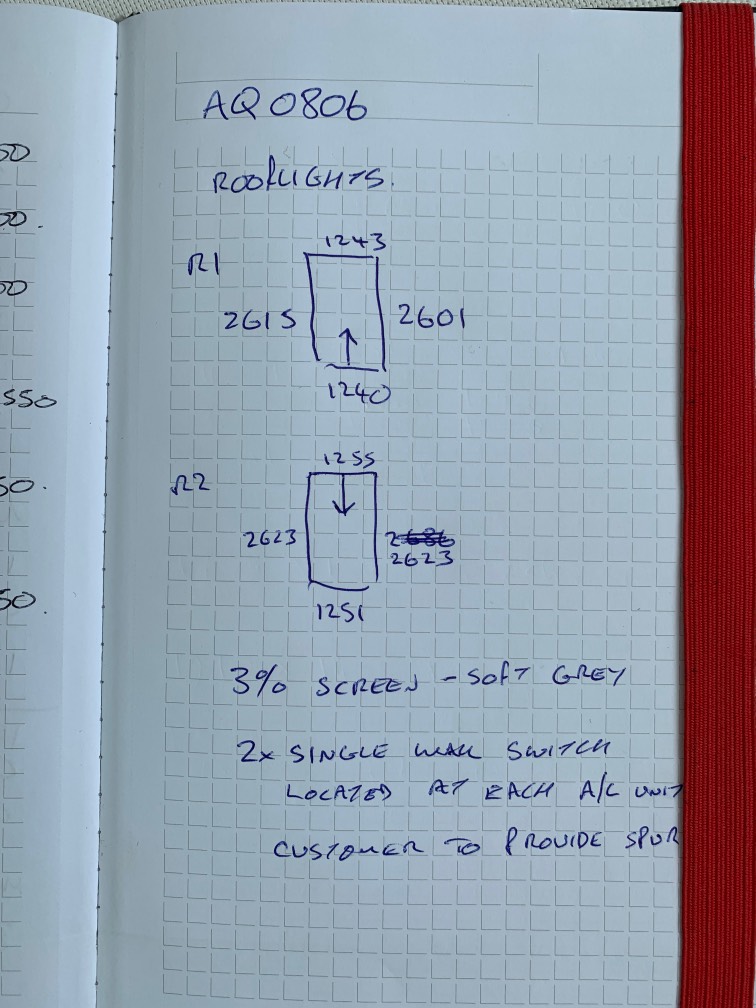 50
00.
00
550
50.
50.
AQ0806
ROOFLIGHTS.
R1
1243
2615
2601
1240
R2
1255
2623
2623
1251
3% SCREEN - SOFT GREY
2x SINGLE WALL SWITCH
LOCATED AT EACH A/C UNIT
CUSTOMER TO PROVIDE SPUR